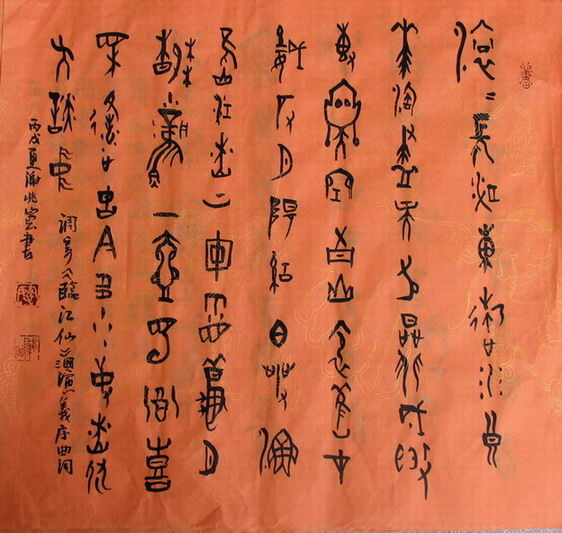 滾〻長江東逝水浪
花淘盡英雄是非成敗
轉頭空青山依舊在
幾度夕陽紅白髮漁
樵江渚上慣看秋月
春風一壺濁酒喜
相逢古今多少事都付
笑談中 調寄臨江仙三國演義序曲詞
丙戌夏 兆 書